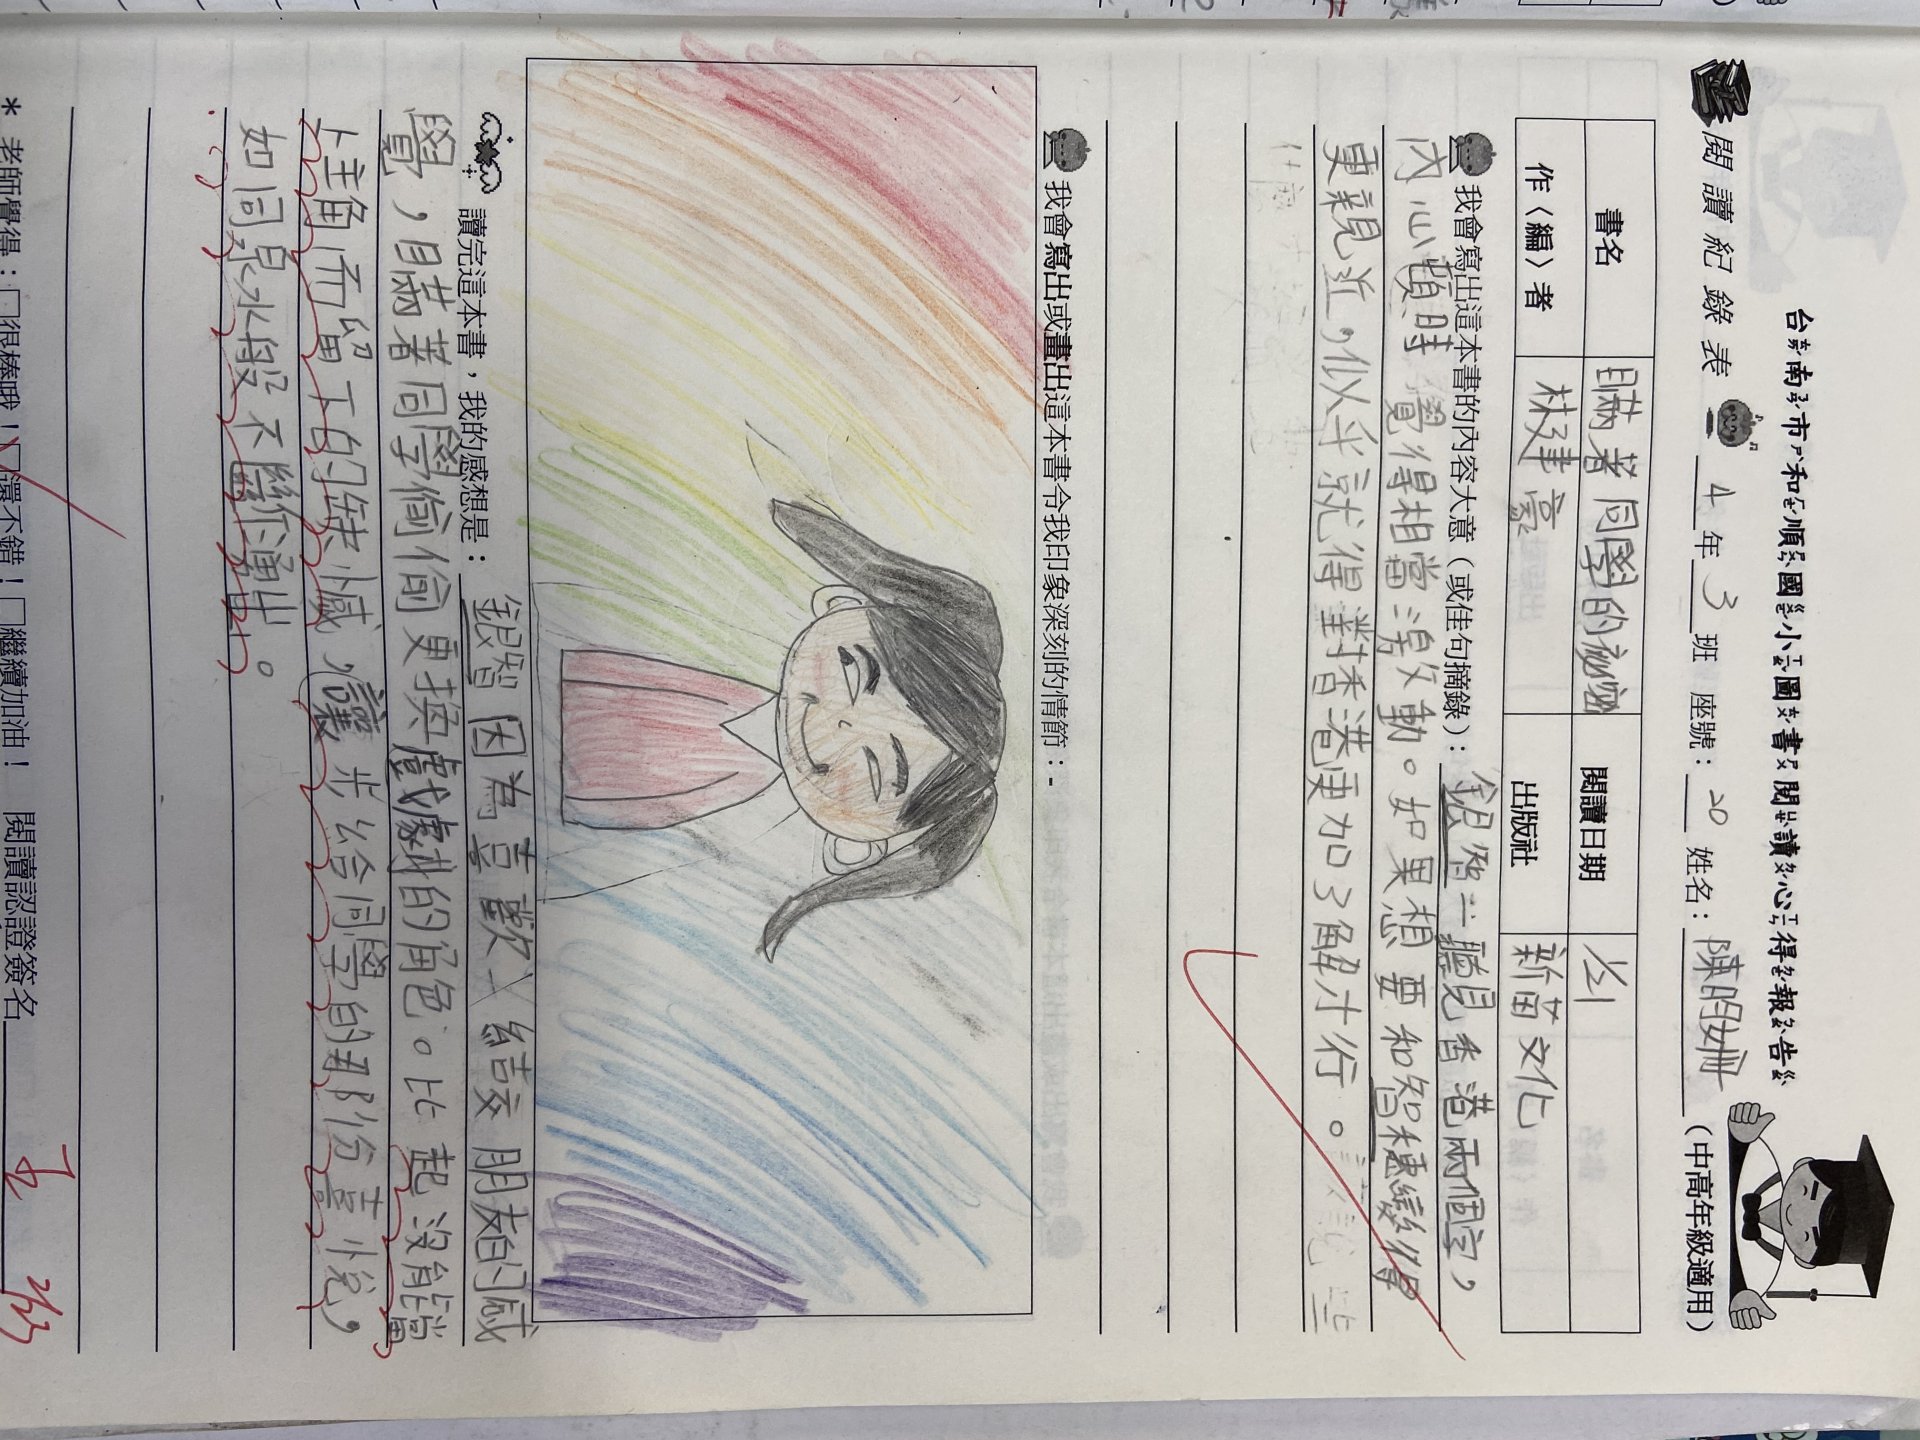 台南市和順國小圖書閱讀心得報告
閱讀紀錄表 4年3班 座號:20 姓名:陳明姍(中高年級適用)
書名 瞞著同學的祕密 閱讀日期 1/21
作〈編〉者 林建 出版社 新苗文化
我會寫出這本書的內容大意(或佳句摘錄):銀智一聽見香港兩個字,
內心頓時覺得相當激動。如果想要和智穗變得
更親近,似乎就得對香港更加了解才行。
我會寫出或畫出這本書令我印象深刻的情節:
讀完這本書,我的感想是:銀智因為喜歡上結交朋友的感
覺,瞞著同學偷偷更換戲劇的角色。比起沒能當
上主角而留下的缺憾,讓步給同學的那份喜悅,
如同泉水般不斷湧出。
* 老師覺得:□很棒哦!□還不錯!□繼續加油! 閱讀認證簽名